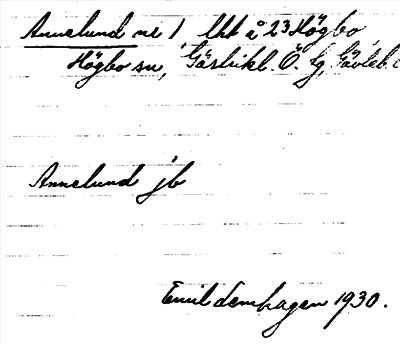 Annelund nr 1 lht å 23 Högbo,
Högbo sn, Gästrikl. Ö. tg, Gävleb.
Annelund jb
Emil Lernhagen 1930.